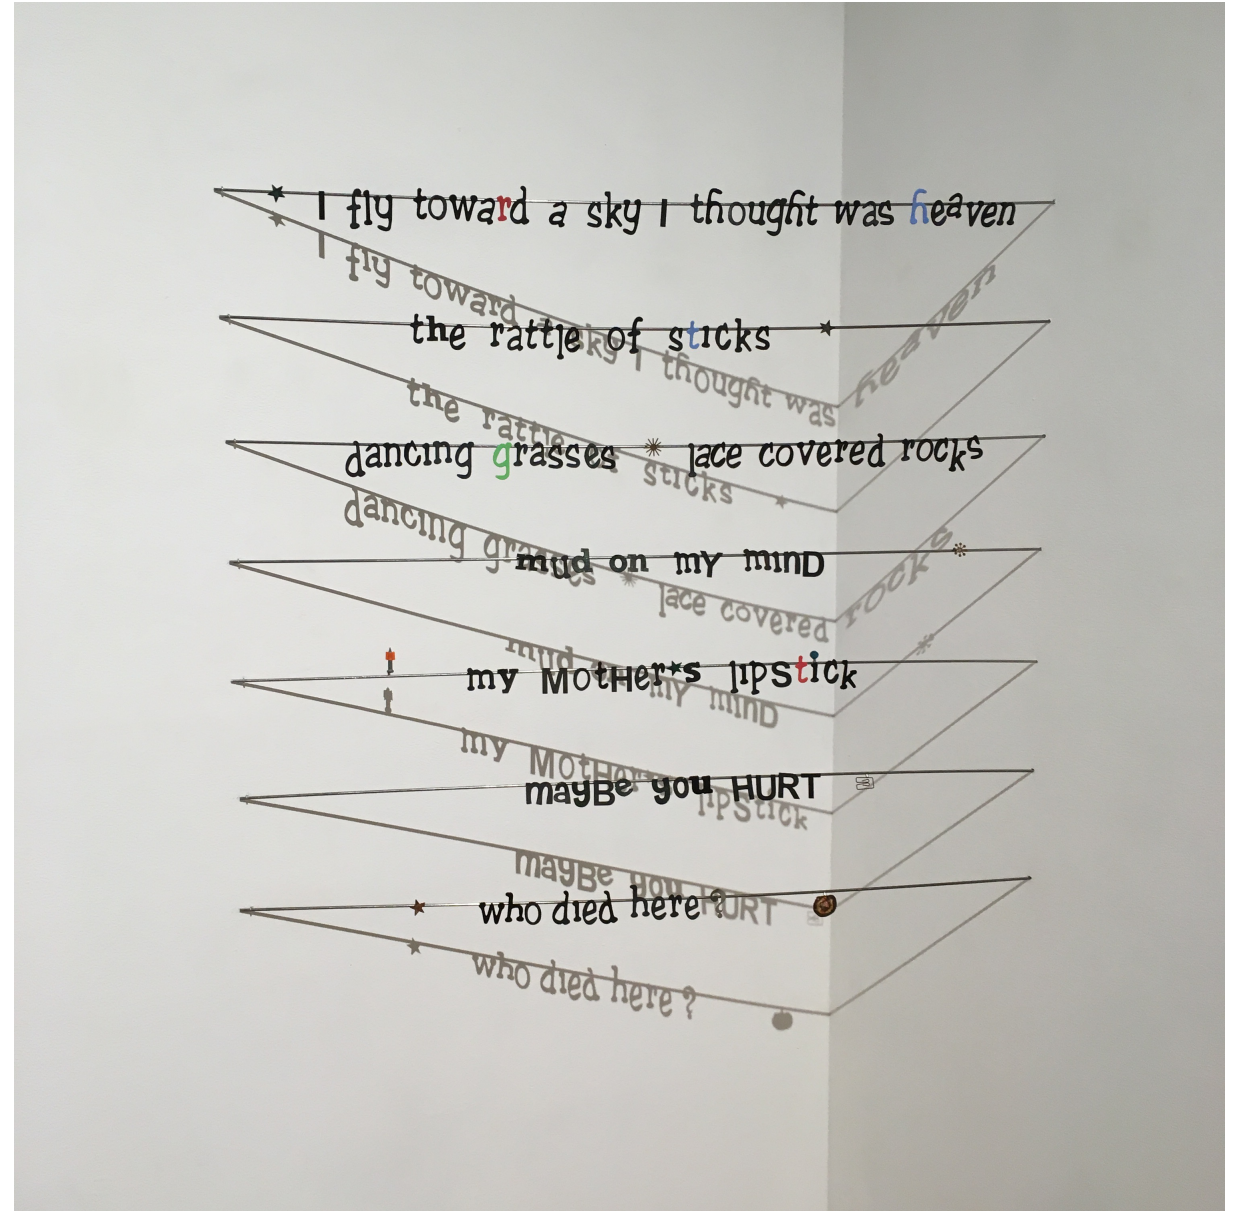 I fly toward a sky I thought was heaven
the rattle of sticks
dancing grasses lace covered rocks
mud on mY minD
my MotHer's lipStick
mayBe you HURT
who died here?